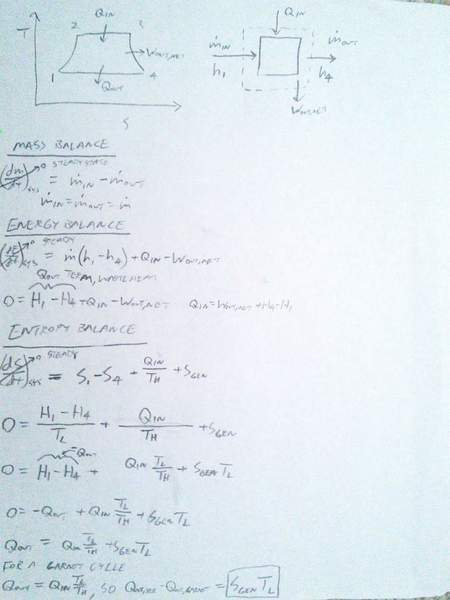 T
2
3
QIN
WOUT,NET
1
4
QOUT
S
QIN
ṁIN
h1
ṁOUT
h4
WOUT,NET
MASS BALANCE
(dm/dt)SYS →0 STEADY STATE = ṁIN - ṁOUT
ṁIN = ṁOUT = ṁ
ENERGY BALANCE
(dE/dt)SYS →0 STEADY = ṁ(h1-h4) + QIN - WOUT,NET
QOUT TERM, WASTE HEAT
0 = H1-H4 + QIN - WOUT,NET QIN = WOUT,NET + H4-H1
ENTROPY BALANCE
(dS/dt)SYS →0 STEADY = S1-S4 + QIN/TH + SGEN
0 = (H1-H4)/TL + QIN/TH + SGEN
=-QOUT
0 = H1-H4 + QIN TL/TH + SGEN TL
0 = -QOUT + QIN TL/TH + SGEN TL
QOUT = QIN TL/TH + SGEN TL
FOR A CARNOT CYCLE
QOUT = QIN TL/TH, SO - QOUT,CARNOT = SGEN TL